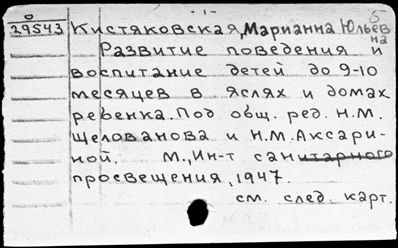 - 1 -
29543 Кистяковская, Марианна Юльевна
Развитие поведения и
воспитание детей до 9-10
месяцев в яслях и домах
ребенка. Под общ. ред. Н.М.
Щелованова и Н.М. Аксари-
ной. М., Ин-т санитарного
просвещения, 1947.
см. след. карт.